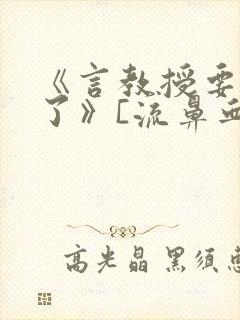 《言教授要
了》[流鼻血
高光晶 黑须惠